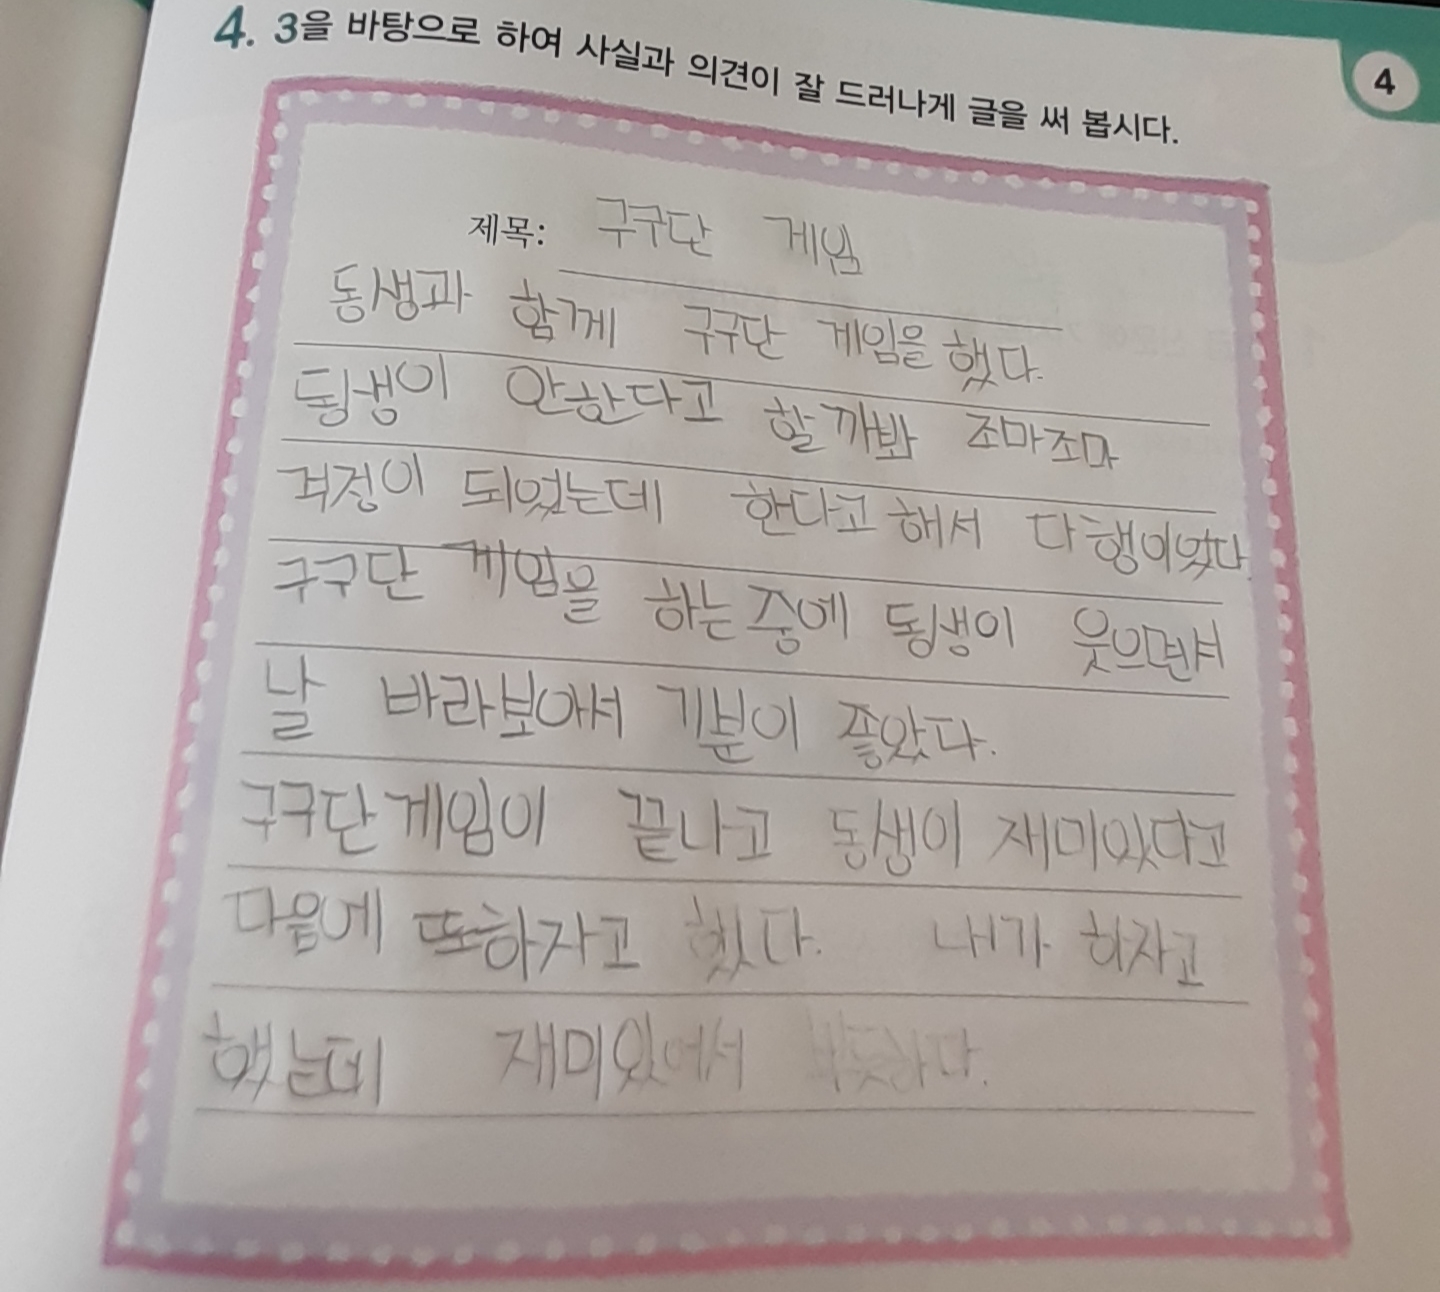 4. 3을 바탕으로 하여 사실과 의견이 잘 드러나게 글을 써 봅시다.
4
제목: 구구단 게임
동생과 함께 구구단 게임을 했다.
동생이 안한다고 할까봐 조마조마
걱정이 되었는데 한다고 해서 다행이었다.
구구단 게임을 하는 중에 동생이 웃으면서
날 바라보아서 기분이 좋았다.
구구단 게임이 끝나고 동생이 재미있다고
다음에 또 하자고 했다. 내가 하자고
했는데 재미있어서 뿌듯하다.